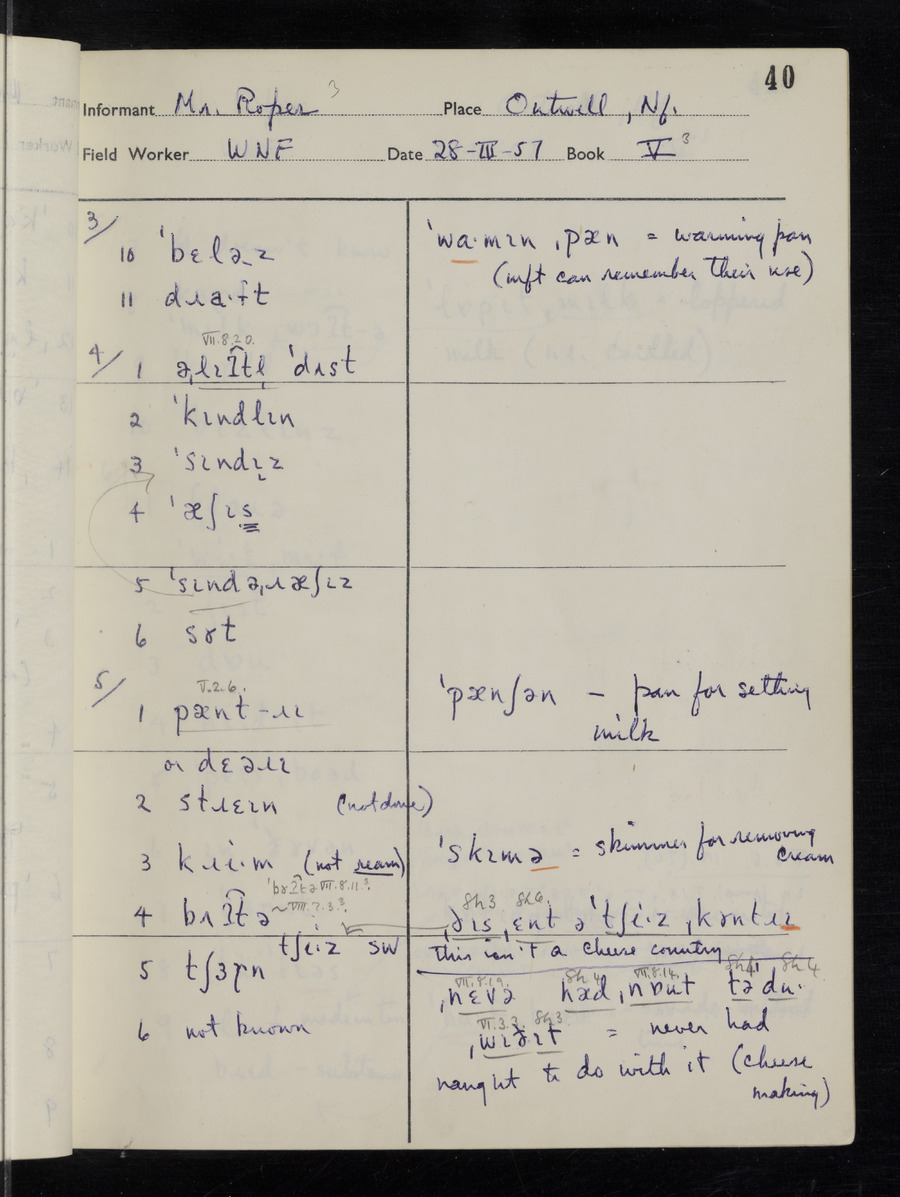 40
Informant Mr. Roper 3 Place Outwell, Nf.
Field Worker WNF Date 28-III-57 Book V 3
3/
10 ˈbɛləz
11 dɹa·ft
ˈwa·mɪn ˌpæn = warming pan
(inft can remember their use)
VII.8.20.
4/ 1 əˌlɪʔtl ˈdɪst
2 ˈkɪndlɪn
3 ˈsɪndɪz
4 ˈæʃɪs
5 ˈsɪndəˌɹæʃɪz
6 sɤt
5/
V.2.6.
1 pæntɹɪ
or dɛəɹɪ
ˈpænʃən – pan for setting
milk
2 stɹɛɪn (not done)
3 kɹi·m (not ream)
ˈskɪmə = skimmer for removing
cream
VII.8.11.
4 bɹʔtə
5 tʃɜn tʃi·z SW
6 not known
Sh3 Sh6
ˌðɪs ˌɛnt ə ˈtʃi·z ˌkəntɹɪ
This isn't a cheese country
VII.8.19. Sh4 VII.8.14. Sh4
ˌnɛvə hæd ˌnɒut tə du·
VI.3.3. Sh3.
ˌwɪðɪt = never had
naught to do with it (cheese
making)